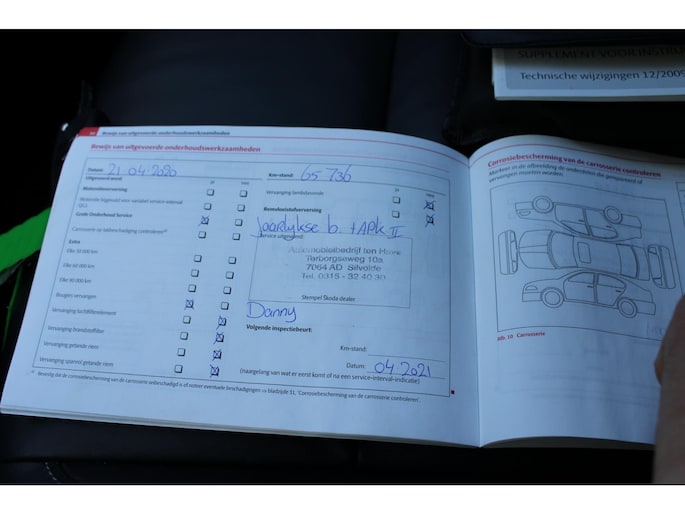 SUPPLEMENT VOOR INSTRU
Technische wijzigingen 12/2009
Bewijs van uitgevoerde onderhoudswerkzaamheden
Bewijs van uitgevoerde onderhoudswerkzaamheden
Datum: 21 04 2020
Km-stand: 65 736
Uitgevoerd werk:
ja nee
Motorolieverversing
Grote Onderhoud Service
Carrosserie op lakbeschadiging controleren
Extra
Elke 30 000 km
Elke 60 000 km
Elke 90 000 km
Bougies vervangen
Vervanging luchtfilterelement
Vervanging brandstoffilter
Vervanging getande riem
Vervanging spanrol getande riem
ja nee
Remvloeistofverversing
Jaarlykse b. + APK II
Service uitgevoerd:
Automobielbedrijf ten Have
Terborgseweg 10a
7064 AD Silvolde
Tel. 0315 - 32 40 30
Stempel Škoda dealer
Danny
Volgende inspectiebeurt:
Km-stand:
Datum: 04.2021
(naargelang van wat er eerst komt of na een service-interval-indicatie)
Bevestig dat de corrosiebescherming van de carrosserie onbeschadigd is of noteer eventuele beschadigingen op bladzijde 51, 'Corrosiebescherming van de carrosserie controleren'.
Corrosiebescherming van de carrosserie controleren
Markeer in de afbeelding de onderdelen die gerepareerd of
vervangen moesten worden
Afb. 10 Carrosserie